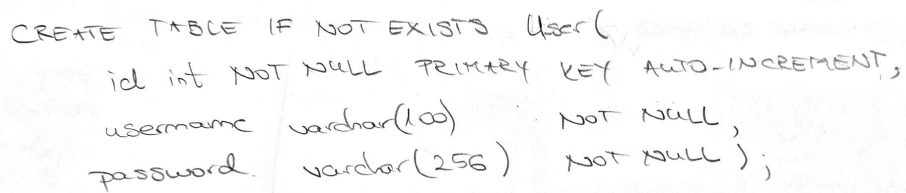 CREATE TABLE IF NOT EXISTS User(
id int NOT NULL PRIMARY KEY AUTO-INCREMENT,
username varchar(100) NOT NULL,
password varchar(256) NOT NULL);